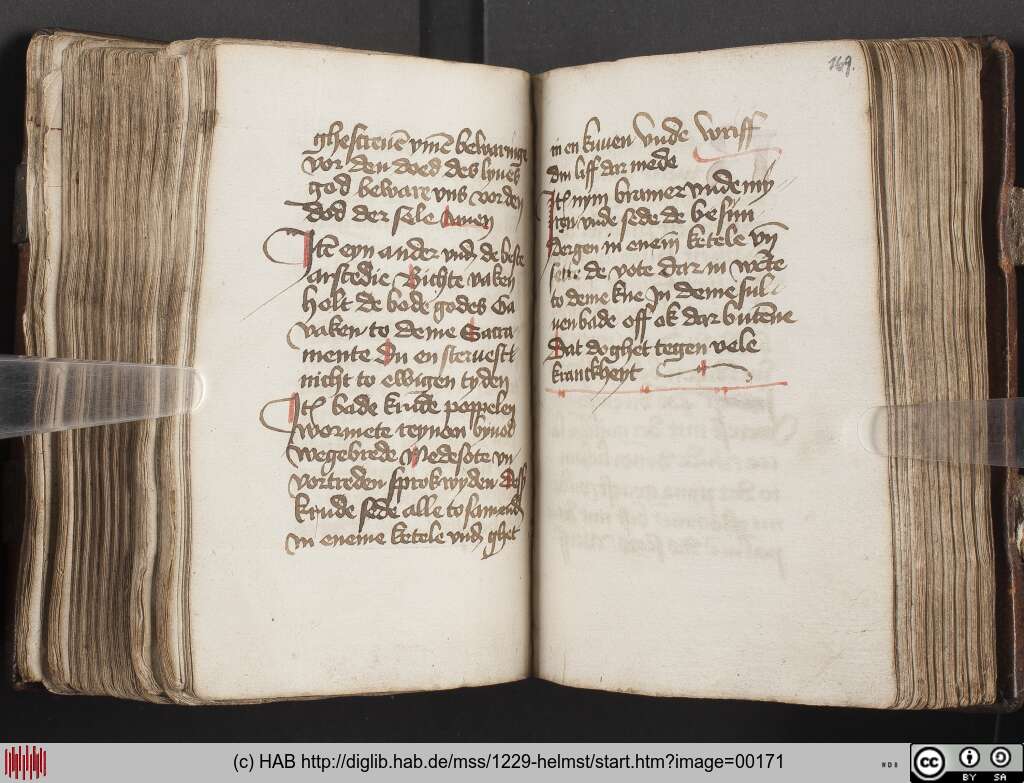 ghescreuē vmē bewaringe
vor den doed des lyues
god beware vns vor den
dod der sele Amen
Itē eyn ander vnd de beste
arstedie Bichte vaken
holt de bode godes Ga
vaken to deme Sacra
mente Du en steruest
nicht to ewigen tyden
Itē bade krude poppelen
wormete reynen byuod
wegebrede Medesote vn
vortreden sprokwyden
krude sede alle to samend
in eneme ketele vnd ghet
169.
in en kuven vnde wriff
din liff dar mede
Itē nym bramer vnde my
vnde sede de be sun
dergen in enem ketele vn
de vote dar in wēte
to deme kne In deme sul
uen bade off ok dar butēne
Dat doghet tegen vele
kranckheyt
(c) HAB http://diglib.hab.de/mss/1229-helmst/start.htm?image=00171
cc
BY SA